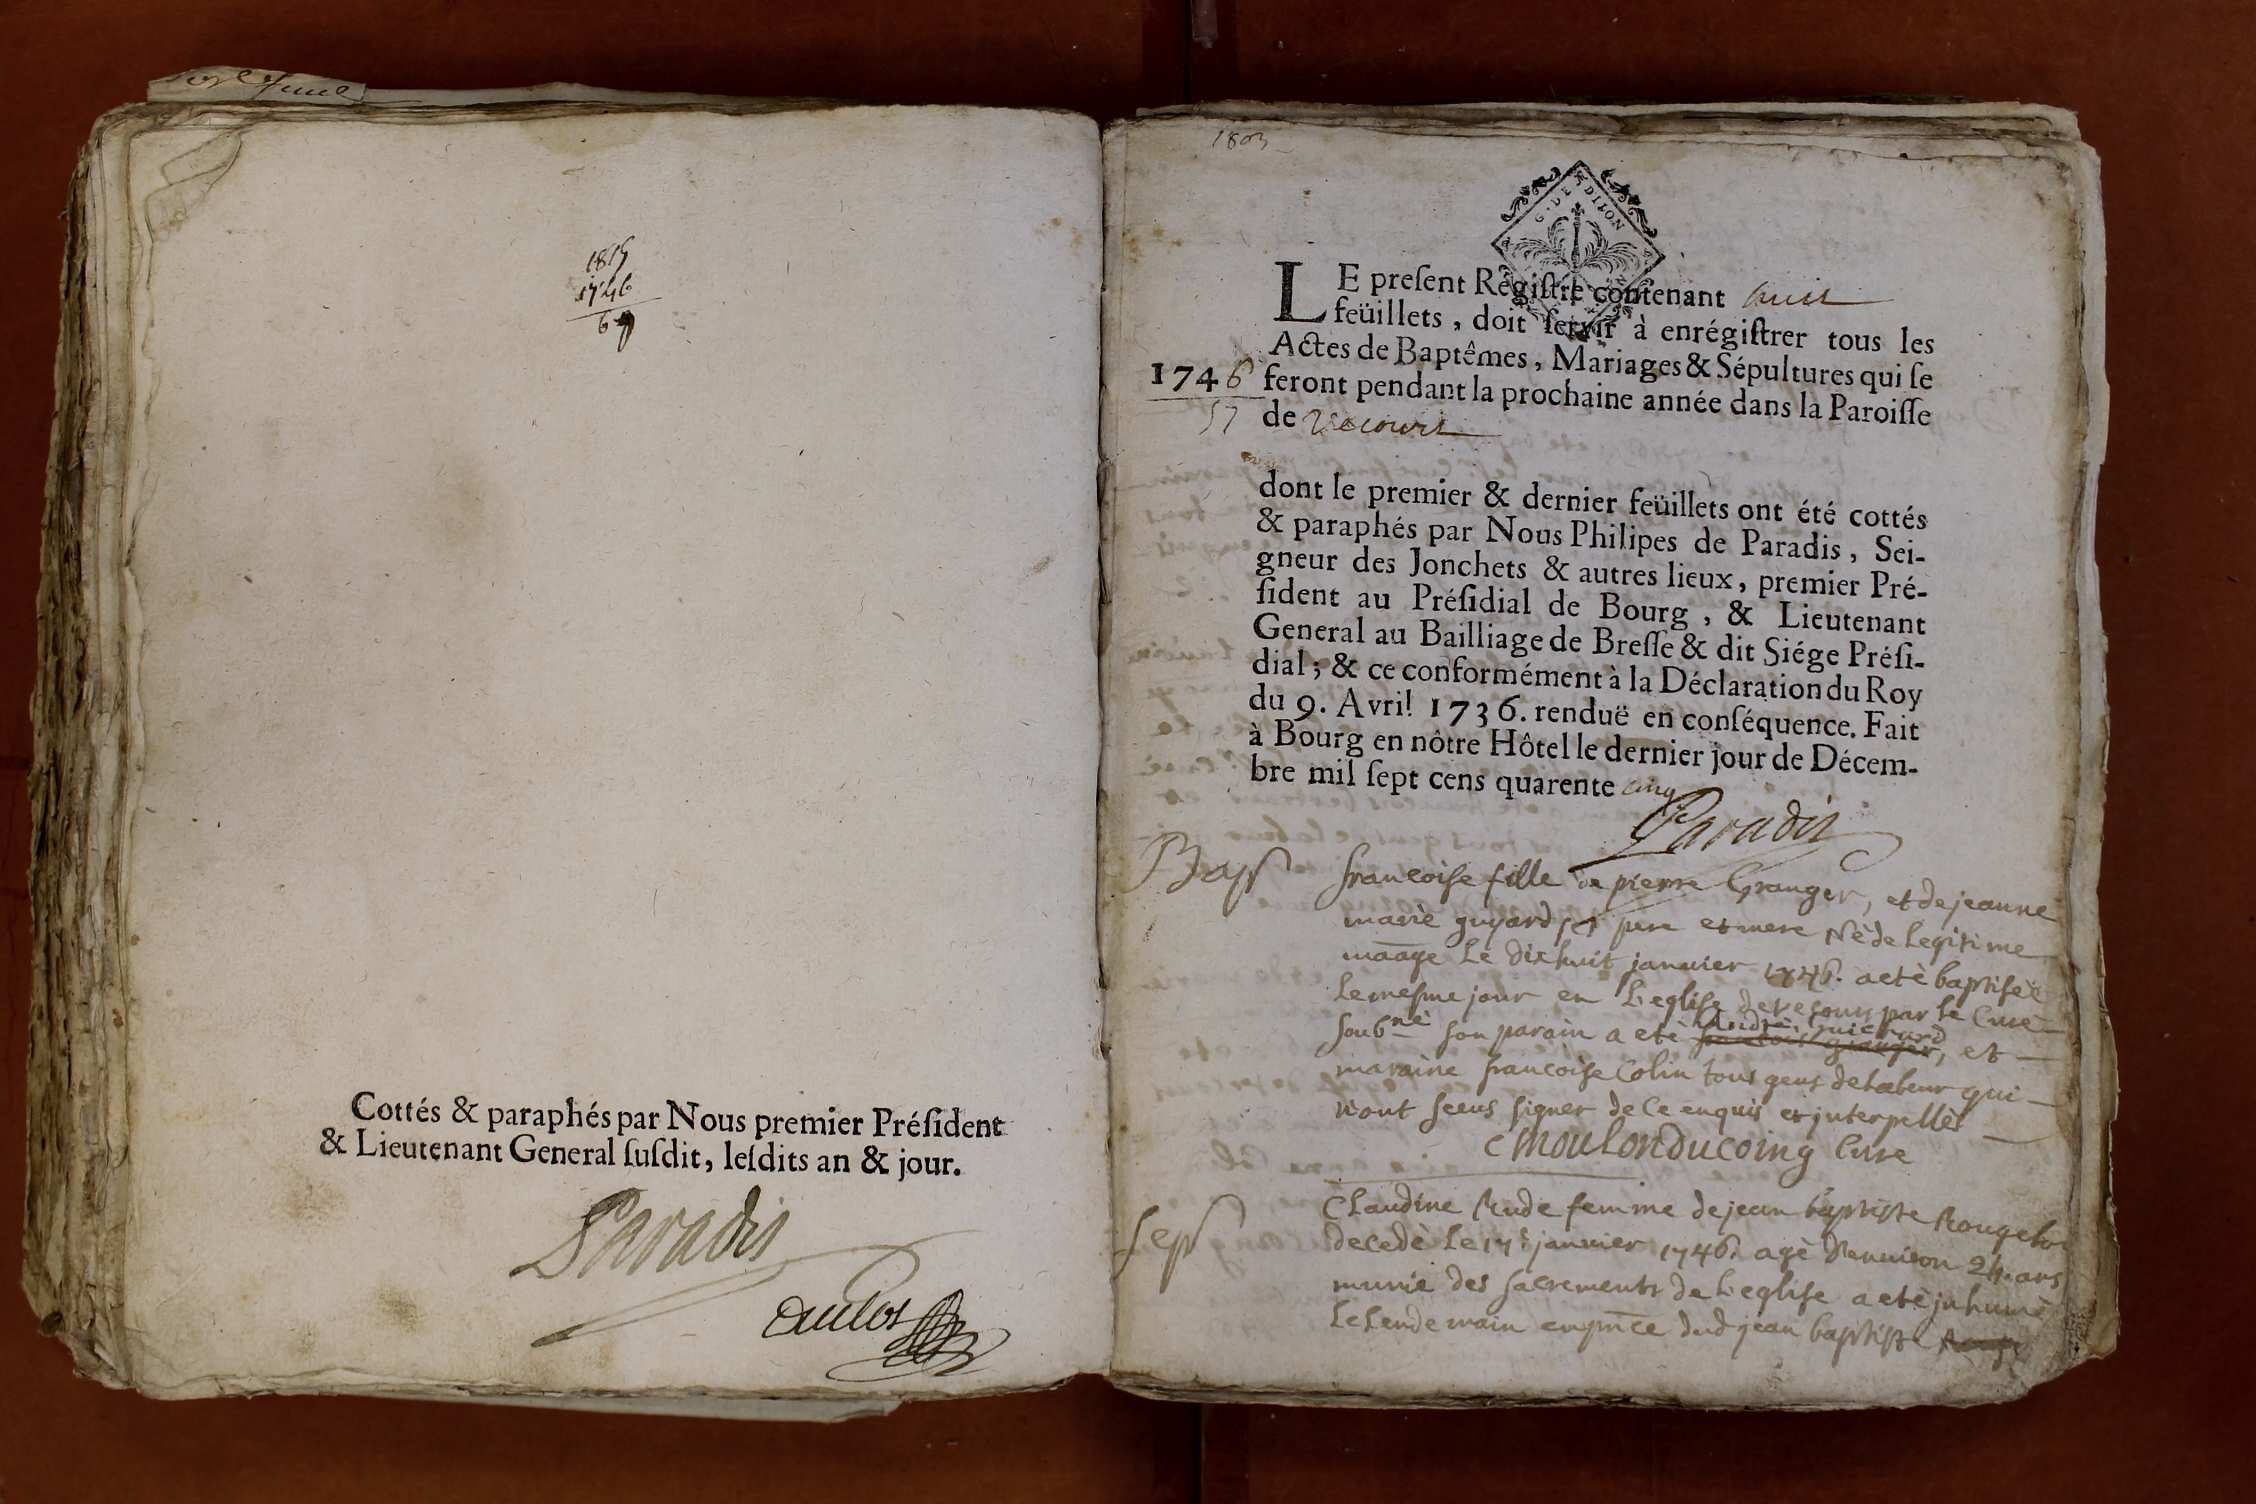 1815
1746
69
Cottés & paraphés par Nous premier Préſident
& Lieutenant General ſuſdit, leſdits an & jour.
Paradis
1803
G. DE DIJON
LE preſent Régiſtre contenant huit
feüillets, doit ſervir à enrégiſtrer tous les
Actes de Baptêmes, Mariages & Sépultures qui ſe
1746 feront pendant la prochaine année dans la Paroiſſe
57 de
dont le premier & dernier feüillets ont été cottés
& paraphés par Nous Philipes de Paradis, Sei-
gneur des Jonchets & autres lieux, premier Pré-
ſident au Préſidial de Bourg, & Lieutenant
General au Bailliage de Breſſe & dit Siége Préſi-
dial; & ce conformément à la Déclaration du Roy
du 9. Avril 1736. renduë en conſéquence. Fait
à Bourg en nôtre Hôtel le dernier jour de Décem-
bre mil ſept cens quarente cinq
Paradis
Bap francoise fille de pierre Granger, et de jeanne
marie guyard ses pere et mere Nè de legitime
maage le dixhuit januier 1746. a etè baptiseè
le mesme jour en l'eglise de par le Curè
soubnè son parain a etè Andrè et
maraine francoise Colin tous gens de labeur qui
n'ont sceus signer de ce enquis et interpellès
Moulonducoing Cure
Sep Claudine Rude femme de jean baptiste Rougelot
decedè le 17 januier 1746. agè d'enuiron 24. ans
munie des sacrements de l'eglise a etè inhumè
le lendemain en pnce dud jean baptiste